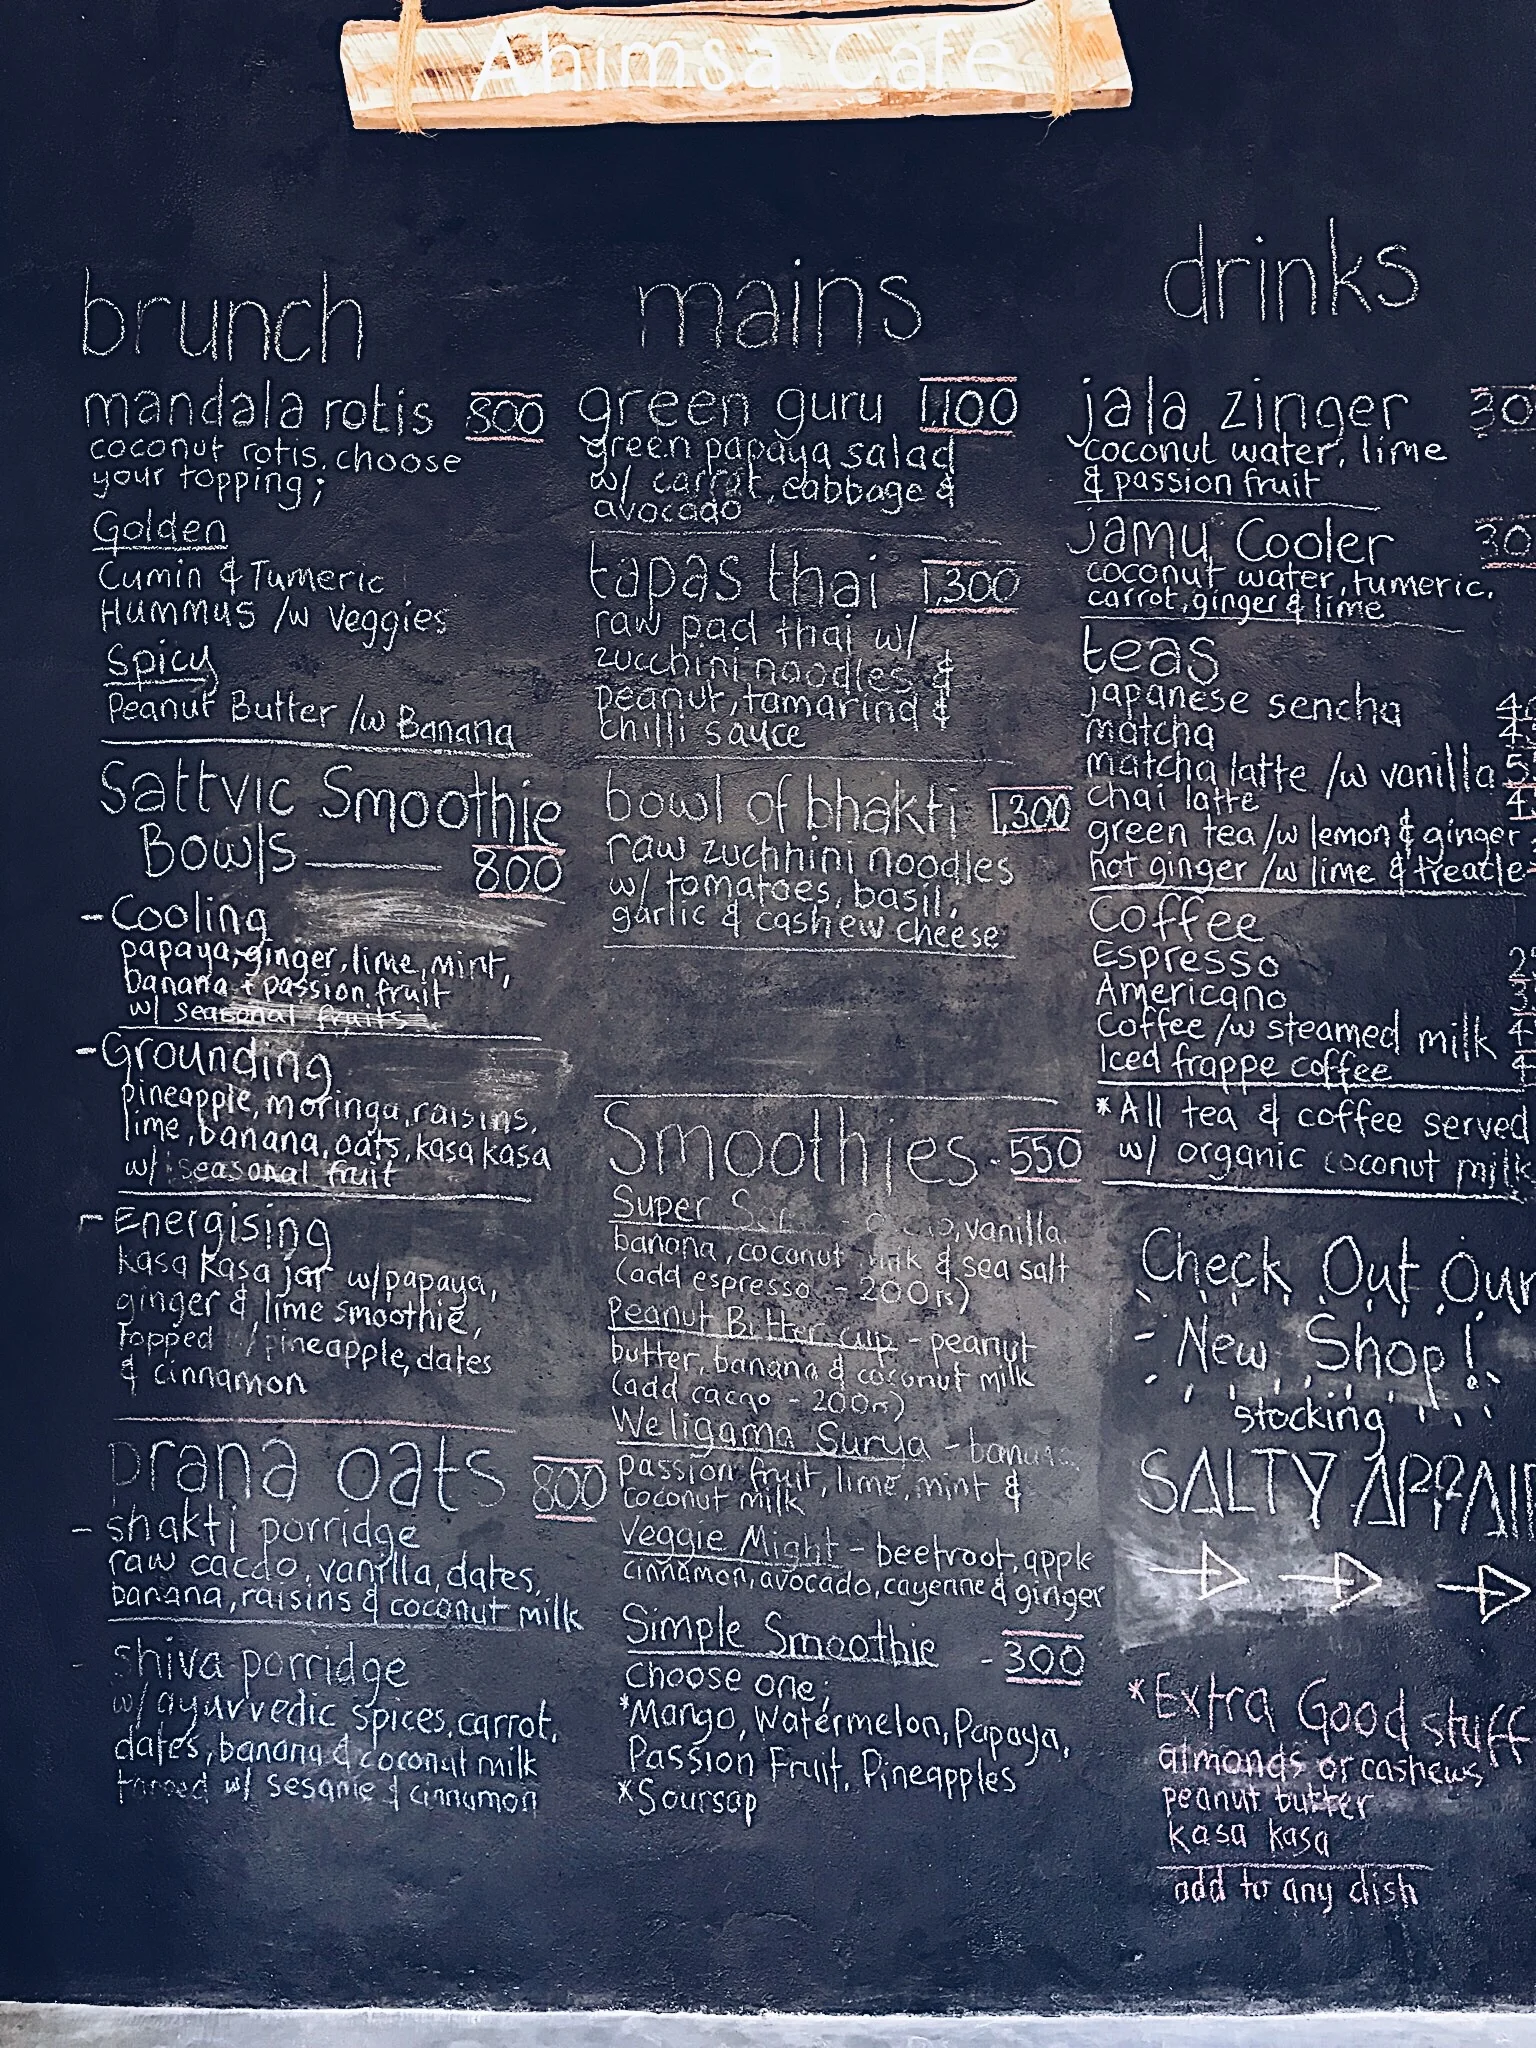 Ahimsa Cafe
brunch
mandala rotis 800
coconut rotis, choose
your topping;
Golden
Cumin & Tumeric
Hummus /w Veggies
Spicy
Peanut Butter /w Banana
Sattvic Smoothie
Bowls 800
- Cooling
papaya, ginger, lime, mint,
banana + passion fruit
w/ seasonal fruits
- Grounding
pineapple, moringa, raisins,
lime, banana, oats, kasa kasa
w/ seasonal fruit
- Energising
kasa kasa jar w/ papaya,
ginger & lime smoothie,
topped w/ pineapple, dates
& cinnamon
prana oats 800
- shakti porridge
raw cacao, vanilla, dates,
banana, raisins & coconut milk
- shiva porridge
w/ ayurvedic spices, carrot,
dates, banana & coconut milk
w/ sesame & cinnamon
mains
green guru 1,100
green papaya salad
w/ carrot, cabbage &
avocado
tapas thai 1,300
raw pad thai w/
zucchini noodles &
peanut, tamarind &
chilli sauce
bowl of bhakti 1,300
raw zuchhini noodles
w/ tomatoes, basil,
garlic & cashew cheese
Smoothies - 550
Super - vanilla
banana, coconut milk & sea salt
(add espresso - 200rs)
Peanut Butter cup - peanut
butter, banana & coconut milk
(add cacao - 200rs)
Weligama Surya - banana,
passion fruit, lime, mint &
coconut milk
Veggie Might - beetroot, apple
cinnamon, avocado, cayenne & ginger
Simple Smoothie - 300
choose one;
*Mango, Watermelon, Papaya,
Passion Fruit, Pineapples
*Soursop
drinks
jala zinger
coconut water, lime
& passion fruit
Jamu Cooler
coconut water, tumeric,
carrot, ginger & lime
teas
japanese sencha
matcha
matcha latte /w vanilla
chai latte
green tea /w lemon & ginger
hot ginger /w lime & treacle
Coffee
Espresso
Americano
Coffee /w steamed milk
Iced frappe coffee
*All tea & coffee served
w/ organic coconut milk
Check Out Our
- New Shop!
stocking
SALTY
*Extra Good stuff
almonds or cashews
peanut butter
kasa kasa
add to any dish